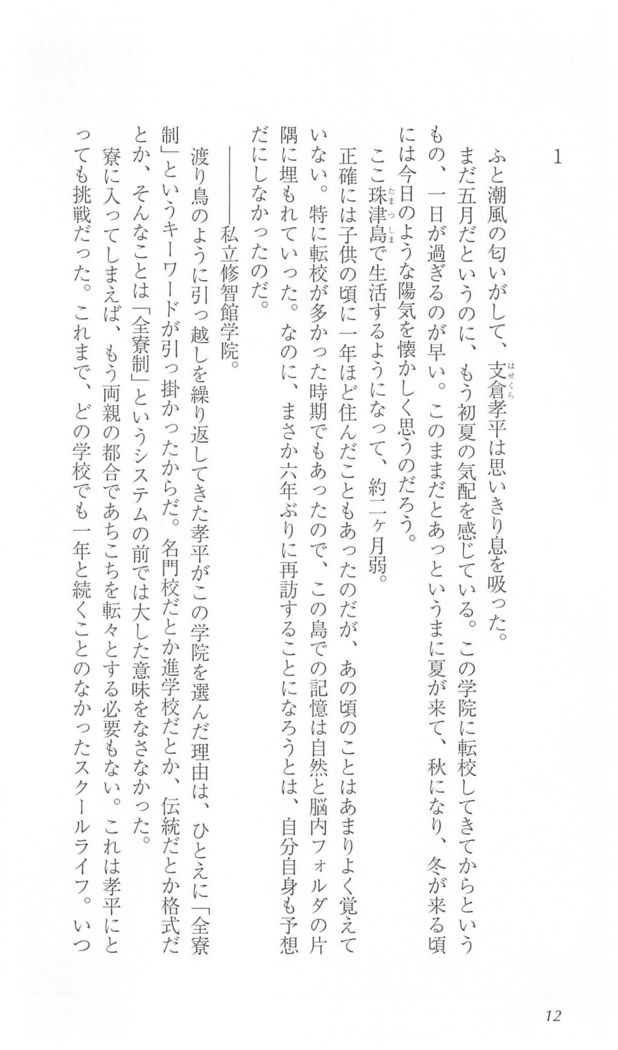 1
ふと潮風の匂いがして、支倉孝平は思いきり息を吸った。
はせくら
まだ五月だというのに、もう初夏の気配を感じている。この学院に転校してきてからという
もの、一日が過ぎるのが早い。このままだとあっというまに夏が来て、秋になり、冬が来る頃
には今日のような陽気を懐かしく思うのだろう。
ここ珠津島で生活するようになって、約二ヶ月弱。
たまつしま
正確には子供の頃に一年ほど住んだこともあったのだが、あの頃のことはあまりよく覚えて
いない。特に転校が多かった時期でもあったので、この島での記憶は自然と脳内フォルダの片
隅に埋もれていった。なのに、まさか六年ぶりに再訪することになろうとは、自分自身も予想
だにしなかったのだ。
――――私立修智館学院。
渡り鳥のように引っ越しを繰り返してきた孝平がこの学院を選んだ理由は、ひとえに「全寮
制」というキーワードが引っ掛かったからだ。名門校だとか進学校だとか、伝統だとか格式だ
とか、そんなことは「全寮制」というシステムの前では大した意味をなさなかった。
寮に入ってしまえば、もう両親の都合であちこちを転々とする必要もない。これは孝平にと
っても挑戦だった。これまで、どの学校でも一年と続くことのなかったスクールライフ。いつ
12